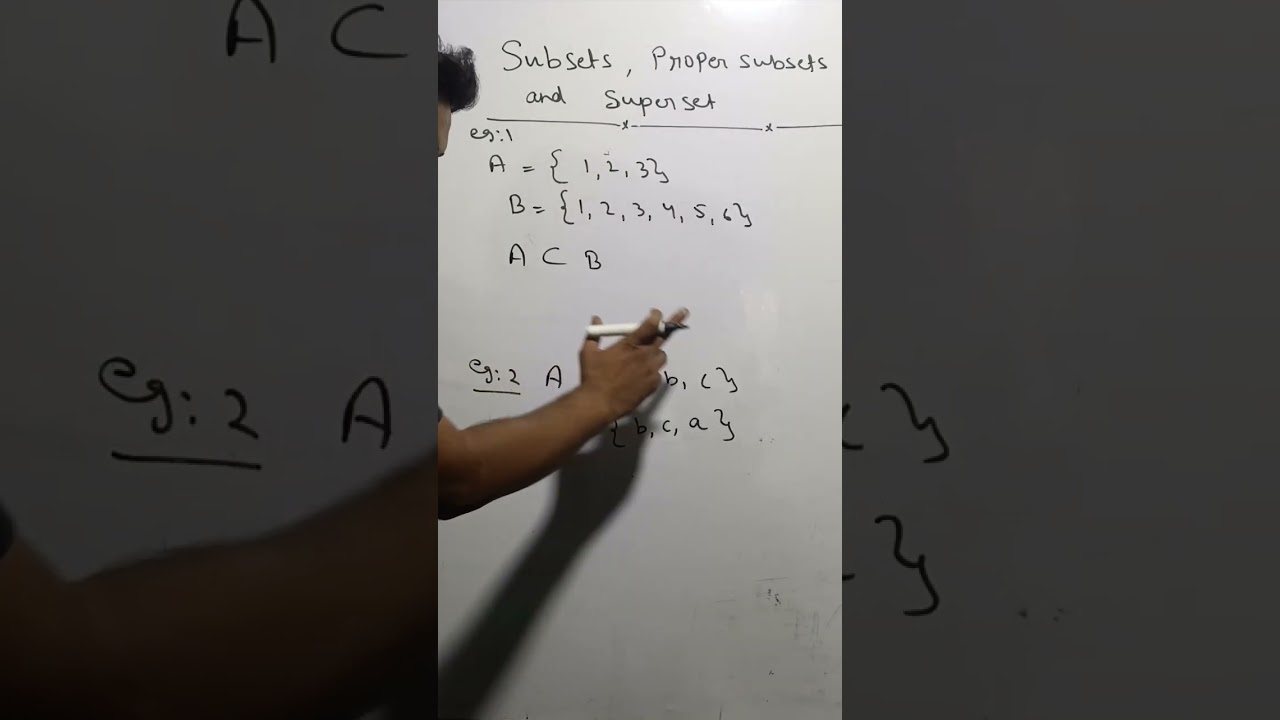 Subsets, Proper subsets
and Superset
eg:1
A = { 1, 2, 3}
B = {1, 2, 3, 4, 5, 6}
A ⊂ B
eg:2 A b, c}
{ b, c, a }